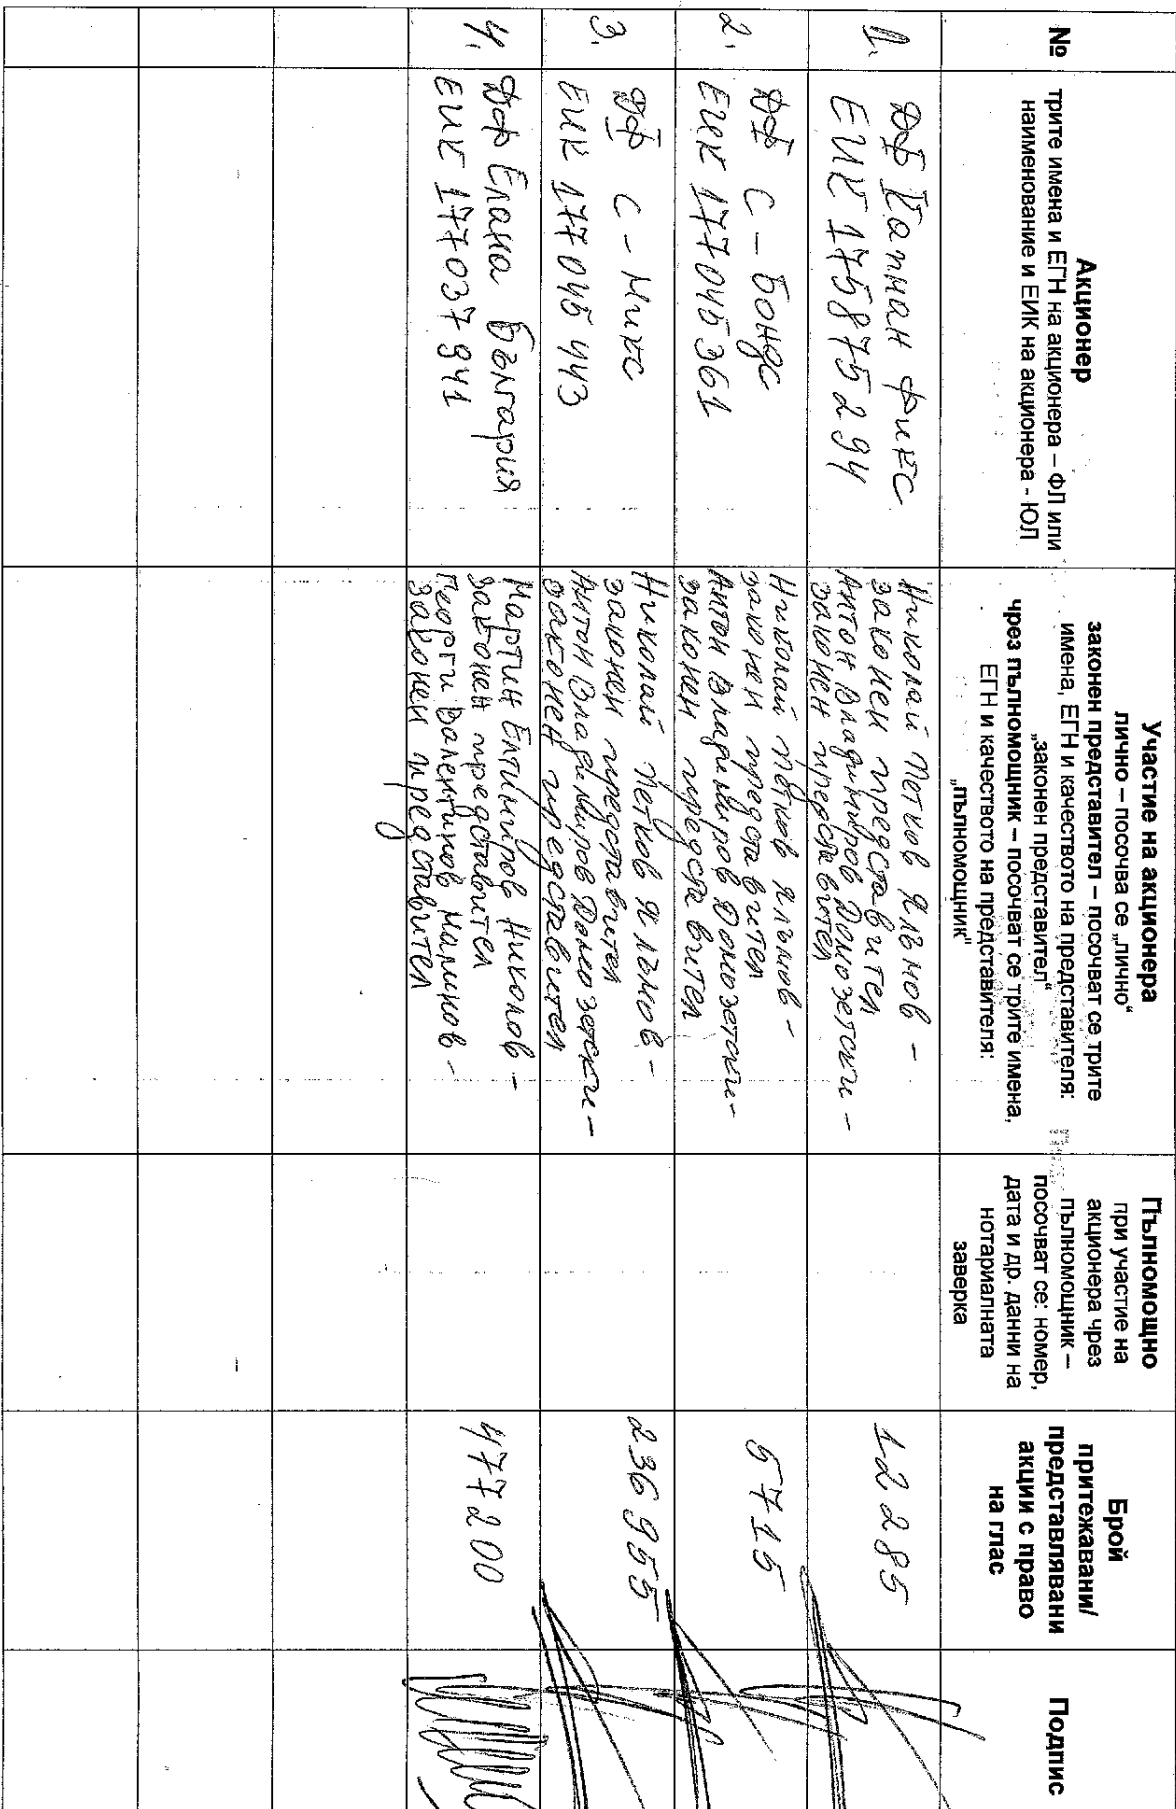 №
Акционер
трите имена и ЕГН на акционера – ФЛ или
наименование и ЕИК на акционера - ЮЛ
Участие на акционера
лично – посочва се „лично“
законен представител – посочват се трите
имена, ЕГН и качеството на представителя:
„законен представител“
чрез пълномощник – посочват се трите имена,
ЕГН и качеството на представителя:
„пълномощник“
Пълномощно
при участие на
акционера чрез
пълномощник –
посочват се: номер,
дата и др. данни на
нотариалната
заверка
Брой
притежавани/
представлявани
акции с право
на глас
Подпис
1.
ДФ Капман Фикс
ЕИК 175875294
Николай Петков Ялъмов -
законен представител
Антон Владимиров Домозетски -
законен представител
12285
2.
ДФ С - Бондс
ЕИК 177045361
Николай Петков Ялъмов -
законен представител
Антон Владимиров Домозетски -
законен представител
5715
3.
ДФ С - Микс
ЕИК 177045443
Николай Петков Ялъмов -
законен представител
Антон Владимиров Домозетски -
законен представител
236955
4.
ДФ Елана България
ЕИК 177037941
Мартин Ептимиров Николов -
законен представител
Георги Валентинов Малинов -
законен представител
477200